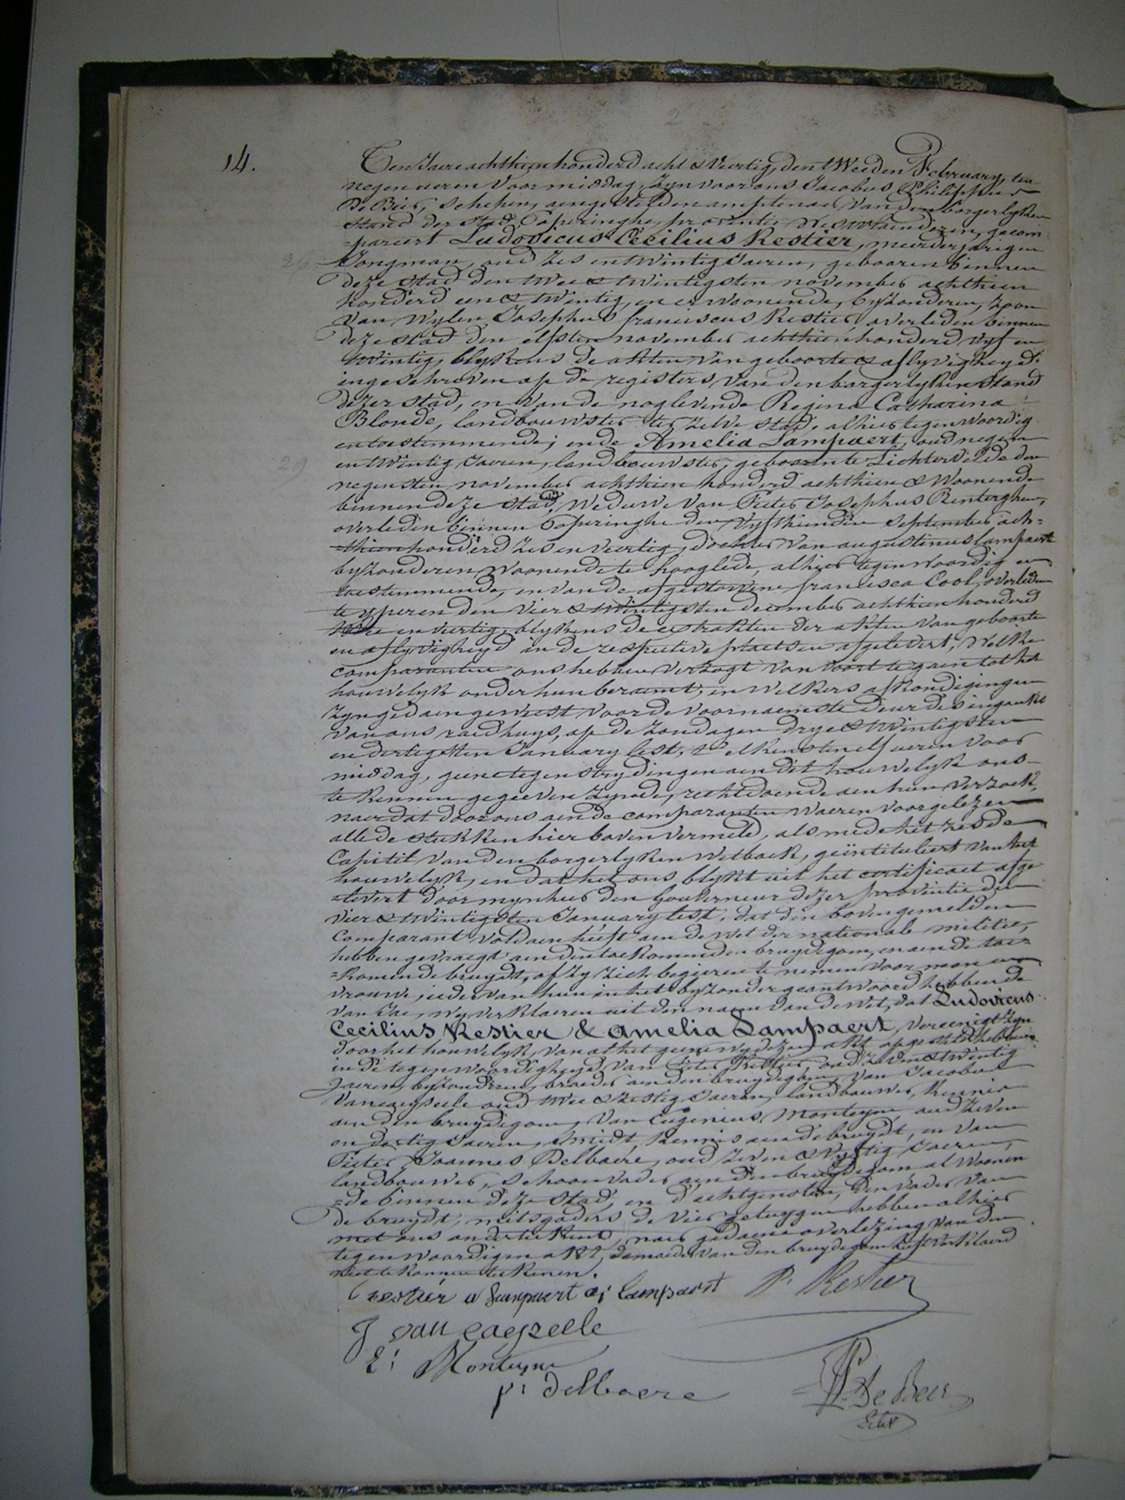 14.
Ten Jaere achthien honderd acht & Veertig, den tweeden February, ten
negen ueren voormiddag, Zyn voor ons Jacobus Philippus
De Beir, schepen, amptenaer van den borgerlyken
Stand der Stad Poperinghe, provintie West Vlaenderen, gecom-
=pareert Ludovicus Cecilius Restier, meerderjarigen
Jongman, oud Zes en twintig Jaeren, gebooren binnen
deze Stad den twee & twintigsten november achthien
honderd een & twintig, en er woonende, byzonderen, Zoon
van Wylen Josephus franciscus Restier overleden binnen
deze stad den elfsten november achthien honderd vyf en
twintig, blykens de akten van geboorte & aflyvigheyd
ingeschreven op de registers van den borgerlyken Stand
dezer stad, en van de noglevende Regina Catharina
Blonde, landbouwster ter zelve stad, alhier tegenwoordig
en toestemmende; en de Amelia Lampaert, oud negen
29
en twintig Jaeren, landbouwster, geboren te Lichtervelde den
negensten november achthien honderd achthien & Woonende
binnen deze Stad, Weduwe van Pieter Josephus
overleden binnen Poperinghe den Vyfthienden September ach-
=thien honderd Zes en Veertig, dochter van augustinus lampaert
byzonderen woonende te hooglede, alhier tegenwoordig en
toestemmende, en van de afgestorvene francisca Cool, overleden
te yperen den vier & twintigsten december achthien honderd
en veertig, blykens de extrakten der akten van geboorte
en aflyvigheyd in de respective plaetsen afgelevert, Welke
comparanten ons hebben verzogt van voort te gaen tot het
houwelyk onder hun beraemt, en welkers afkondigingen
Zyn gedaen geweest voor de voornaemste deur des ingangs
van ons raedhuys, op de Zondagen drye & twintigsten
en dertigsten January lest, t'elkens ten elf ueren voor
middag, geene tegenstrydingen aen dit houwelyk ons
te kennen gegeven zynde, rechtdoende aen hun verzoek,
naer dat door ons aen de comparanten waeren voorgelezen
alle de stukken hier boven vermeld, als mede het zesde
Capitel van den borgerlyken Wetboek, geïntituleert van het
houwelyk, en dat het ons blykt uit het certificaet afge-
=levert door mynheer den Gouverneur dezer provintie den
vier & twintigsten January lest, dat den bovengemelden
Comparant voldaen heeft aen de Wet der nationale militie,
hebben gevraegt aen den toekomenden bruydegom, en aen de toe
=komende bruydt, of zy zich begeeren te nemen voor man en
vrouwe, ieder van hun in het byzonder geantwoord hebbende
van Jae, wy verklaeren uit den naem van de Wet, dat Ludovicus
Cecilius Restier & Amelia Lampaert, vereenigt Zyn
door het houwelyk, van al het geene wy dezen akt opgesteld hebben
in de tegenwoordigheyd van Pieter Restier, oud zeven & twintig
Jaeren, byzonderen, broeder aen den bruydegom, van Jacobus
Vancayzeele oud twee & zestig Jaeren, landbouwer, Kennis
aen den bruydegom, van Eugenius Monteyne oud zeven
en dertig Jaeren, Smidt, Kennis aen de bruydt, en van
Pieter Joannes Delbaere, oud zeven & Vyftig Jaeren,
landbouwer, schoonvader aen den bruydegom, al Woonen
=de binnen deze Stad; en d'echtgenoten, den vader van
de bruydt, mitsgaders de vier getuygen hebben alhier
met ons onderteekent, naer gedaene overlezing van den
tegenwoordigen akt, de moeder van den bruydegom heeft verklaerd
niet te konnen teekenen.
l restier a Lampaert a: Lampaert P: Restier
J van caeyzeele
E: Monteyne
p: delbaere
Ph. De Beir